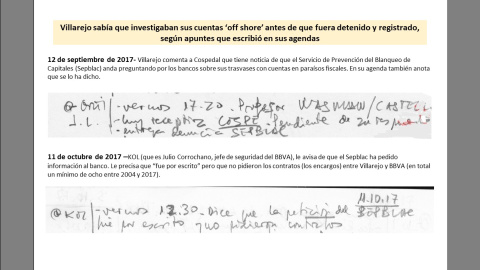 Villarejo sabía que investigaban sus cuentas ‘off shore’ antes de que fuera detenido y registrado,
según apuntes que escribió en sus agendas
12 de septiembre de 2017- Villarejo comenta a Cospedal que tiene noticia de que el Servicio de Prevención del Blanqueo de
Capitales (Sepblac) anda preguntando por los bancos sobre sus trasvases con cuentas en paraísos fiscales. En su agenda también anota
que se lo ha dicho.
-vernos 17.30. Profesor
J.L. -muy receptiva COSPE. Pendiente de
-entrega denuncia SEPBLAC
11 de octubre de 2017 –KOL (que es Julio Corrochano, jefe de seguridad del BBVA), le avisa de que el Sepblac ha pedido
información al banco. Le precisa que “fue por escrito” pero que no pidieron los contratos (los encargos) entre Villarejo y BBVA (en total
un mínimo de ocho entre 2004 y 2017).
11.10.17
@ KOL -vernos 12.30. Dice que la petición del SEPBLAC
fue por escrito y no pidieron contratos